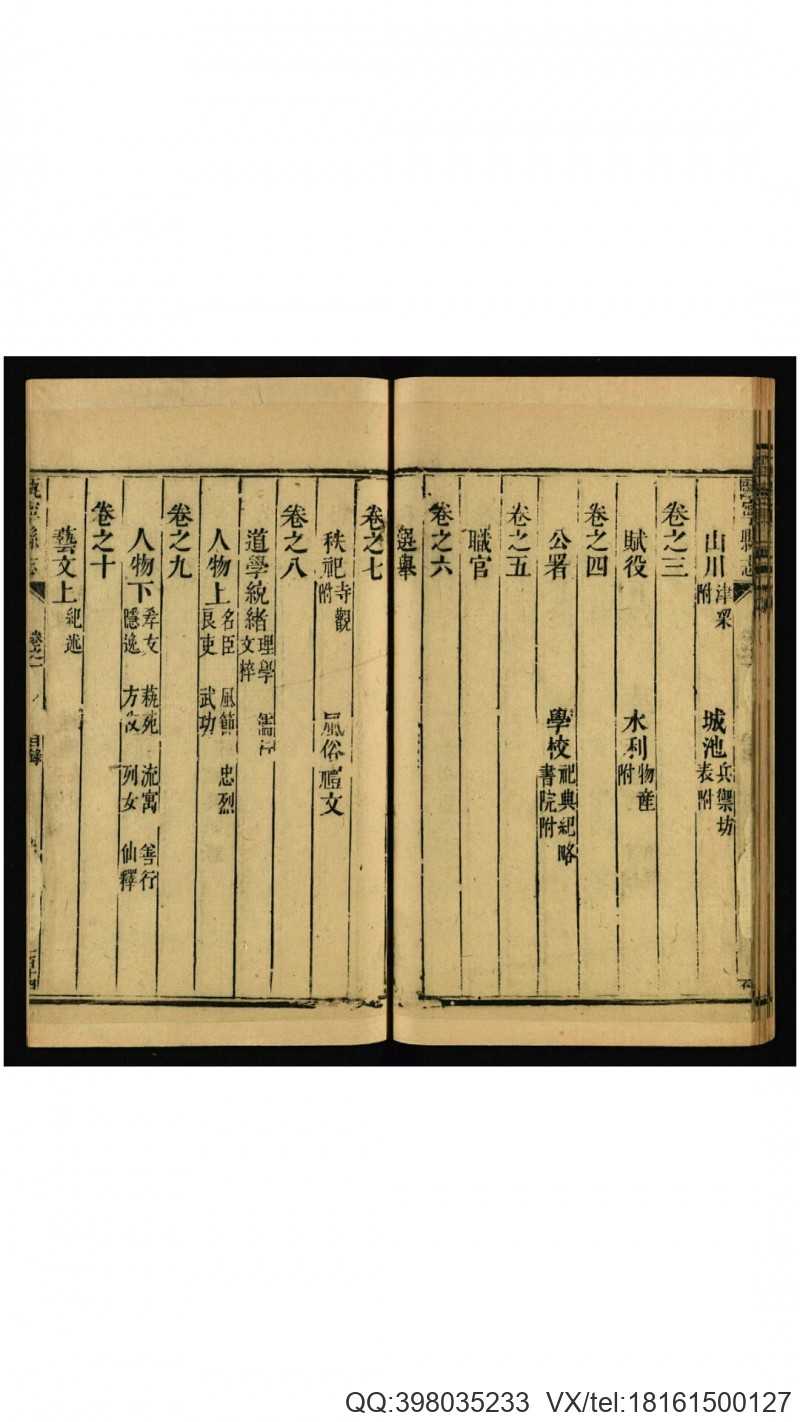 山川 津梁附 城池 兵禦坊表附
卷之三
賦役 水利 物產附
卷之四
公署 學校 祀典紀略書院附
卷之五
職官
卷之六
選舉
卷之七
秩祀 寺觀附 風俗 禮文
卷之八
道學統緒 理學 文粹 儒
人物上 名臣 良吏 風節 武功 忠烈
卷之九
人物下 孝友 隱逸 藝苑 方技 流寓 列女 善行 仙釋
卷之十
藝文上 紀述
甌寧縣志 卷之一 目錄
QQ:398035233 VX/tel:18161500127